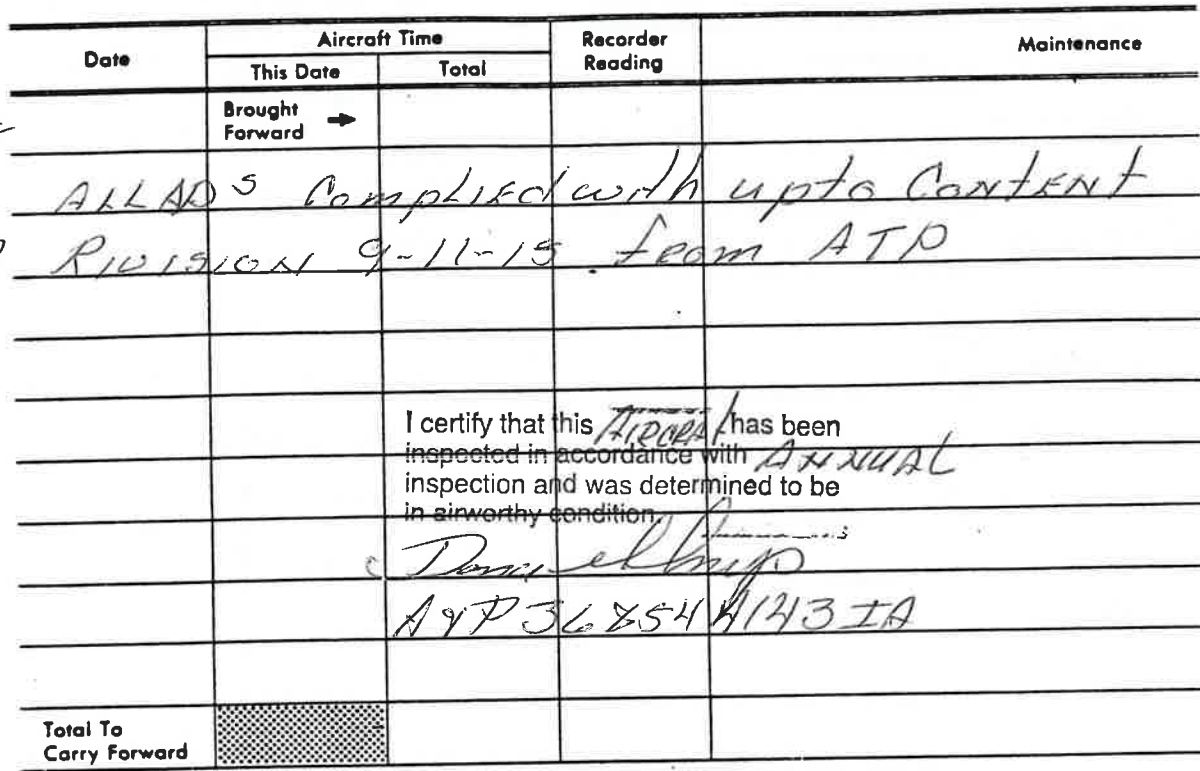 Date
Aircraft Time
Recorder Reading
Maintenance
This Date
Total
Brought
Forward
ALL ADS Complied with upto Content
Rivision 9-11-15 from ATP
I certify that this Aircraf has been
inspected in accordance with ANNUAL
inspection and was determined to be
in airworthy condition.
A&P
IA
Total To
Carry Forward